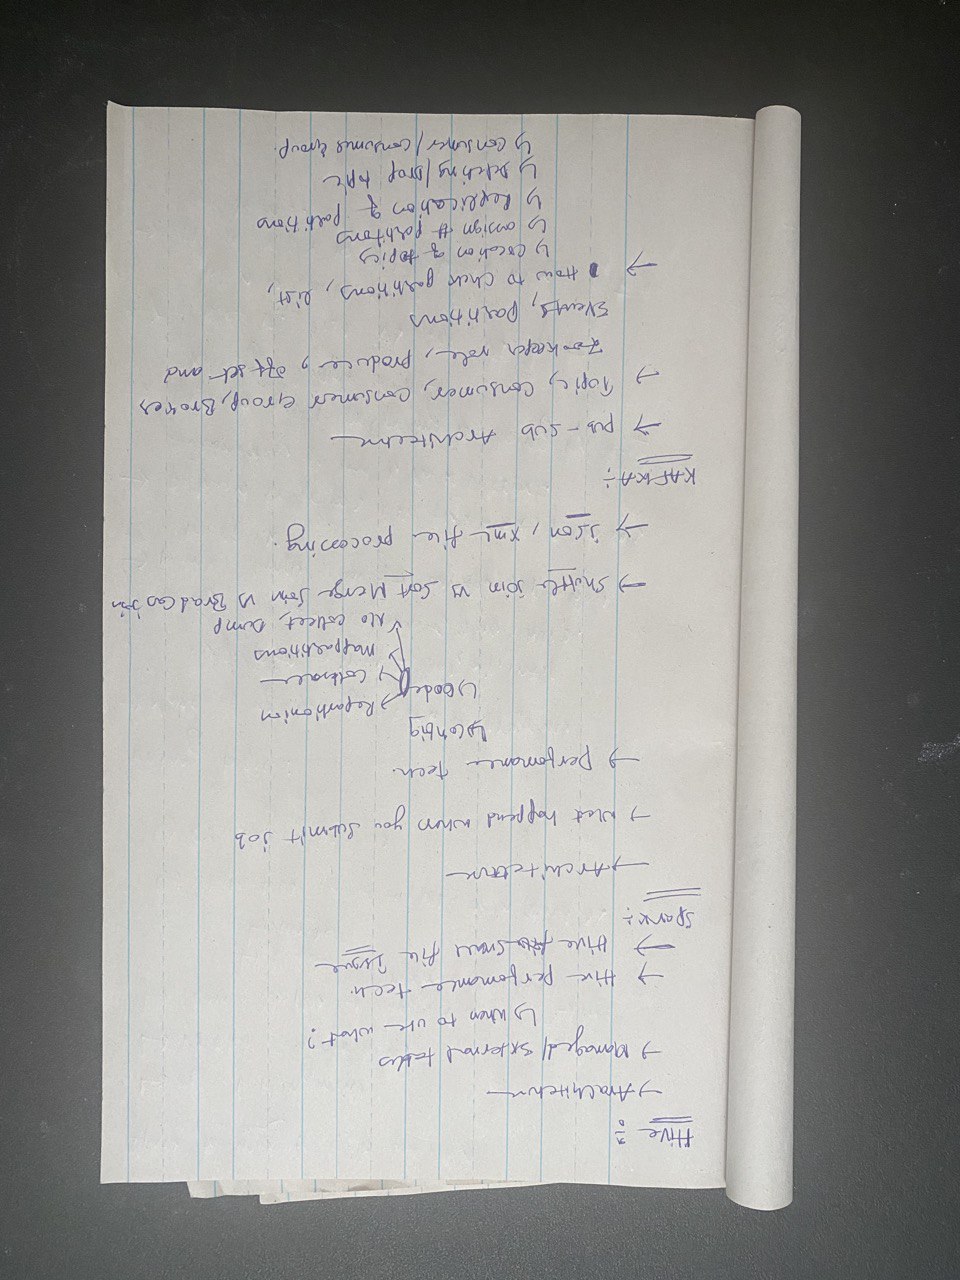 Hive :
→ Arachitecture
→ Managed/ External tables
↳ When to use what?
→ Hive performance tech.
→ Hive small file Issue
Spark:
→ Architecture
→ What happend when you submit job
→ Perfomance tech.
↳ Config
↳ Code → Repartionion
→ Colesace
→ Mappartitions
→ No collect, Dump
→ Shuffle join vs Sort Merge Join vs BradCas join
→ json, xml file processing.
KAFKA:
→ pub-sub Architecture
→ Topic, consumer, consumer Group, Brokes
Zookeeper role, produce, offset and
Events, partitions
→ How to check partitions, list,
↳ creation of topics
↳ assign # partitons
↳ Replication of partitions
↳ Deleting/Drop topic
↳ Consumer/consumer group.